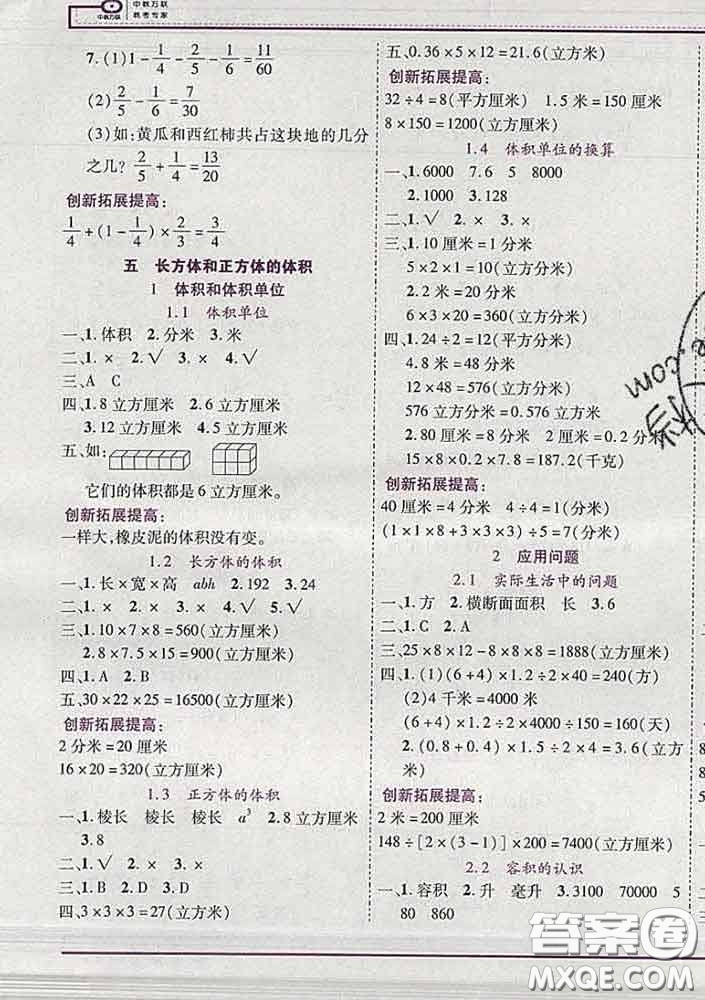 中教万联
中教万联
教考专家
7.(1)1-1/4-2/5-1/6=11/60
(2)2/5-1/6=7/30
(3)如:黄瓜和西红柿共占这块地的几分
之几? 2/5+1/4=13/20
创新拓展提高:
1/4+(1-1/4)×2/3=3/4
五 长方体和正方体的体积
1 体积和体积单位
1.1 体积单位
一、1.体积 2.分米 3.米
二、1.× 2.√ 3.× 4.√
三、A C
四、1.8 立方厘米 2.6 立方厘米
3.12 立方厘米 4.5 立方厘米
五、如:
它们的体积都是 6 立方厘米。
创新拓展提高:
一样大,橡皮泥的体积没有变。
1.2 长方体的体积
一、1.长×宽×高 abh 2.192 3.24
二、1.× 2.× 3.× 4.√ 5.√
三、1.10×7×8=560(立方厘米)
2.8×7.5×15=900(立方厘米)
四、1.A 2.B
五、30×22×25=16500(立方厘米)
创新拓展提高:
2 分米=20 厘米
16×20=320(立方厘米)
1.3 正方体的体积
一、1.棱长 棱长 棱长 a³ 2.8 立方厘米
3.8
二、1.√ 2.√ 3.×
三、1.B 2.D 3.A
四、3×3×3=27(立方厘米)
五、0.36×5×12=21.6(立方米)
创新拓展提高:
32÷4=8(平方厘米) 1.5 米=150 厘米
8×150=1200(立方厘米)
1.4 体积单位的换算
一、1.6000 7.6 5 8000
2.1000 3.128
二、1.√ 2.× 3.×
三、1.10 厘米=1 分米
5×2×1=10(立方分米)
2.2 米=20 分米
6×3×20=360(立方分米)
四、1.24÷2=12(平方分米)
4.8 米=48 分米
12×48=576(立方分米)
576 立方分米=0.576 立方米
2.80 厘米=8 分米 2 厘米=0.2 分米
15×8×0.2×7.8=187.2(千克)
创新拓展提高:
40 厘米=4 分米 4÷4=1(分米)
(1×1×8+3×3×3)÷5=7(分米)
2 应用问题
2.1 实际生活中的问题
一、1.方 2.横断面面积 长 3.6
二、1.C 2.A
三、25×8×12-8×8×8=1888(立方厘米)
四、1.(1)(6+4)×1.2÷2×40=240(方)
(2)4 千米=4000 米
(6+4)×1.2÷2×4000÷150=160(天)
2.(0.8+0.4)×1.5÷2×4=3.6(立方米)
创新拓展提高:
2 米=200 厘米
148÷[2×(3-1)]×200=7400(立方厘米)
2.2 容积的认识
一、1.容积 2.升 毫升 3.3100 70000 5
80 860
答案卷
MXQE.COM